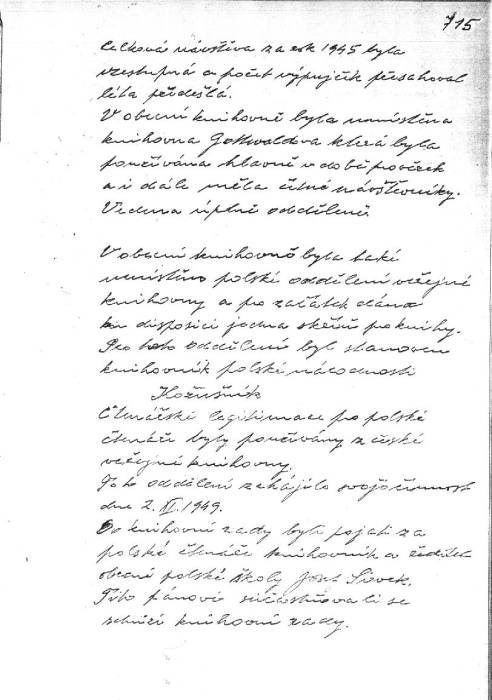 715
Celková návštěva za rok 1945 byla
vzestupná a počet výpujček přesahoval
léta předešlá.
V obecní knihovně byla umístěna
knihovna Gottwaldova která byla
používána hlavně v době
a i dále měla četné návštěvníky.
Vedena úplně odděleně
V obecní knihovně byla také
umístěno polské oddělení veřejné
knihovny a po začátek dána
k disposici jedna skříň po knihy.
Pro toto oddělení byl stanoven
knihovník polské národnosti
Kožušník
Čtenářské legitimace po polské
čtenáře byly používány z české
veřejné knihovny.
Toto oddělení zahájilo svojí činnost
dne 2. XI. 1949.
Do knihovní rady byli pojati za
polské čtenáře knihovník a ředitel
obecné polské školy Josef
Tito pánové súčastňovali se
schůzí knihovní rady.